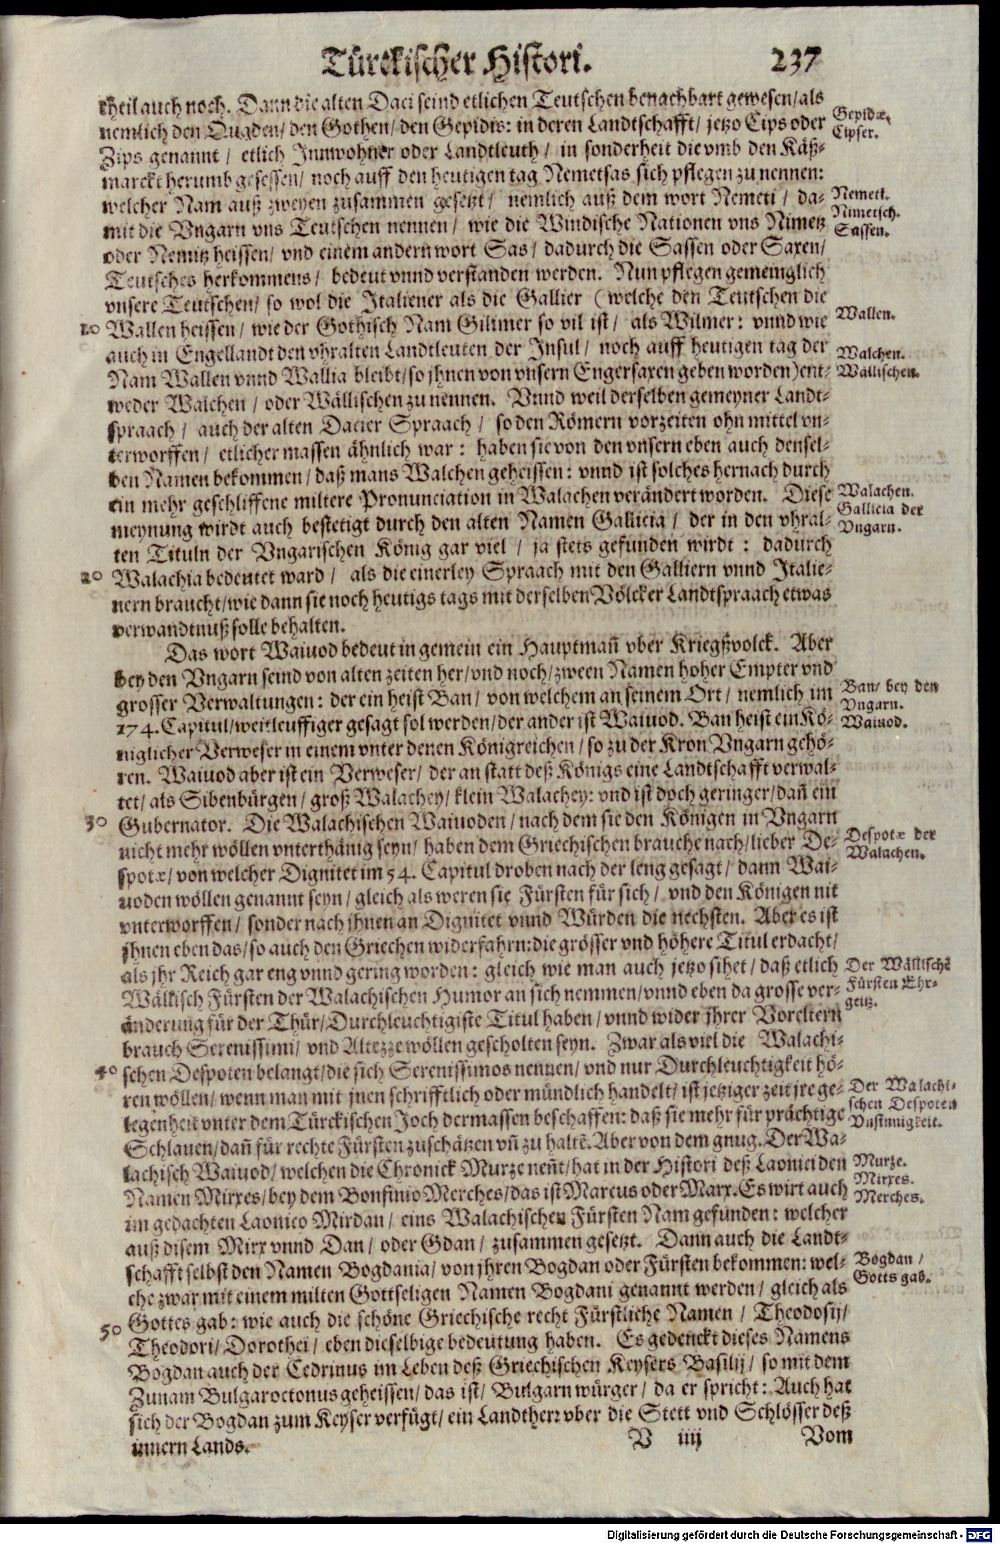 Türckischer Histori. 237
theil auch noch. Dann die alten Daci seind etlichen Teutschen benachbart gewesen/als
nemlich den Qugden/ den Gothen/ den Gepidis: in deren Landtschafft/ jetzo Cips oder
Gepidæ,
Cipser.
Zips genannt / etlich Innwohner oder Landtleuth / in sonderheit die vmb den Käß-
marckt herumb gesessen/ noch auff den heutigen tag Nemetsas sich pflegen zu nennen:
welcher Nam auß zweyen zusammen gesetzt / nemlich auß dem wort Nemeti / da-
Nemeti.
mit die Vngarn vns Teutschen nennen / wie die Windische Nationen vns Nimetz
Nimetsch.
Sassen.
oder Nemitz heissen/ vnd einem andern wort Sas/ dadurch die Sassen oder Saxen/
Teutsches herkommens / bedeut vnnd verstanden werden. Nun pflegen gemeinglich
vnsere Teutschen/ so wol die Italiener als die Gallier ( welche den Teutschen die
10 Wallen heissen / wie der Gothisch Nam Gilimer so vil ist / als Wilmer: vnnd wie
Wallen.
auch in Engellandt den vhralten Landtleuten der Insul / noch auff heutigen tag der
Walchen.
Nam Wallen vnnd Wallia bleibt/ so jhnen von vnsern Engersaxen geben worden) ent-
Wällischen.
weder Walchen / oder Wällischen zu nennen. Vnnd weil derselben gemeyner Landt-
spraach / auch der alten Dacier Spraach / so den Römern vorzeiten ohn mittel vn-
terworffen / etlicher massen ähnlich war : haben sie von den vnsern eben auch densel-
ben Namen bekommen / daß mans Walchen geheissen: vnnd ist solches hernach durch
ein mehr geschliffene miltere Pronunciation in Walachen verändert worden. Diese
Walachen.
meynung wirdt auch bestetigt durch den alten Namen Gallicia / der in den vhral-
Gallicia der
Vngarn.
ten Tituln der Vngarischen König gar viel / ja stets gefunden wirdt : dadurch
20 Walachia bedeutet ward / als die einerley Spraach mit den Galliern vnnd Italie-
nern braucht/ wie dann sie noch heutigs tags mit derselben Völcker Landtspraach etwas
verwandtnuß solle behalten.
Das wort Waiuod bedeut in gemein ein Hauptmañ vber Kriegßvolck. Aber
bey den Vngarn seind von alten zeiten her/ vnd noch/ zween Namen hoher Empter vnd
grosser Verwaltungen: der ein heist Ban / von welchem an seinem Ort / nemlich im
Ban/ bey den
Vngarn.
174. Capitul/ weitleuffiger gesagt sol werden/ der ander ist Waiuod. Ban heist ein Kö-
Waiuod.
niglicher Verweser in einem vnter denen Königreichen / so zu der Kron Vngarn gehö-
ren. Waiuod aber ist ein Verweser/ der an statt deß Königs eine Landtschafft verwal-
tet/ als Sibenbürgen / groß Walachey/ klein Walachey: vnd ist doch geringer/ dañ ein
30 Gubernator. Die Walachischen Waiuoden / nach dem sie den Königen in Vngarn
nicht mehr wöllen vnterthänig seyn/ haben dem Griechischen brauche nach/ lieber De-
Despotæ der
Walachen.
spotæ/ von welcher Dignitet im 54. Capitul droben nach der leng gesagt / dann Wai-
uoden wöllen genannt seyn / gleich als weren sie Fürsten für sich / vnd den Königen nit
vnterworffen / sonder nach jhnen an Dignitet vnnd Würden die nechsten. Aber es ist
jhnen eben das/ so auch den Griechen widerfahrn: die grösser vnd höhere Titul erdacht/
als jhr Reich gar eng vnnd gering worden: gleich wie man auch jetzo sihet / daß etlich
Der Wällische
Wälkisch Fürsten der Walachischen Humor an sich nemmen/ vnnd eben da grosse ver-
Fürsten Ehr-
geitz.
änderung für der Thür/ Durchleuchtigiste Titul haben / vnnd wider jhrer Voreltern
brauch Serenissimi/ vnd Altezze wöllen gescholten seyn. Zwar als viel die Walachi-
40 schen Despoten belangt/ die sich Serenissimos nennen/ vnd nur Durchleuchtigkeit hö-
ren wöllen / wenn man mit jnen schrifftlich oder mündlich handelt/ ist jetziger zeit jre ge-
Der Walachi-
schen Despoten
legenheit vnter dem Türckischen Joch dermassen beschaffen: daß sie mehr für prächtige
Vnsinnigkeit.
Schlauen/ dañ für rechte Fürsten zu schätzen vñ zu haltē. Aber von dem gnug. Der Wa-
lachisch Waiuod/ welchen die Chronick Murze neñt/ hat in der Histori deß Laonici den
Murze.
Namen Mirxes/ bey dem Bonfinio Merches/ das ist Marcus oder Marx. Es wirt auch
Mirxes.
Merches.
im gedachten Laonico Mirdan / eins Walachischen Fürsten Nam gefunden: welcher
auß disem Mirx vnnd Dan / oder Gdan / zusammen gesetzt. Dann auch die Landt-
schafft selbst den Namen Bogdania/ von jhren Bogdan oder Fürsten bekommen: wel-
Bogdan /
che zwar mit einem milten Gottseligen Namen Bogdani genannt werden / gleich als
Gotts gab.
50 Gottes gab: wie auch die schöne Griechische recht Fürstliche Namen / Theodosij/
Theodori/ Dorothei / eben dieselbige bedeutung haben. Es gedenckt dieses Namens
Bogdan auch der Cedrinus im Leben deß Griechischen Keysers Basilij / so mit dem
Zunam Bulgaroctonus geheissen / das ist/ Bulgarn würger / da er spricht: Auch hat
sich der Bogdan zum Keyser verfügt/ ein Landtherr vber die Stett vnd Schlösser deß
innern Lands.
V iiij Vom
Digitalisierung gefördert durch die Deutsche Forschungsgemeinschaft - DFG